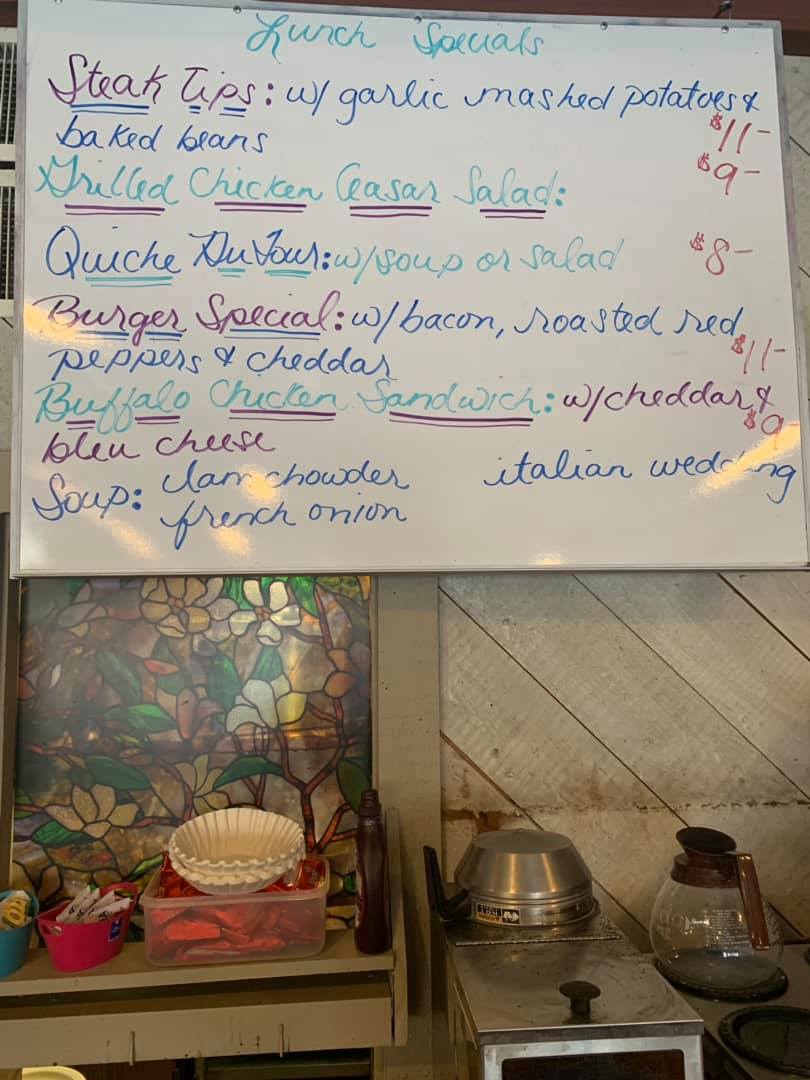 Lunch Specials
Steak Tips: w/ garlic mashed potatoes &
baked beans $11-
Grilled Chicken Ceasar Salad: $9-
Quiche Du Jour: w/soup or salad $8-
Burger Special: w/bacon, roasted red
peppers & cheddar $11-
Buffalo Chicken Sandwich: w/cheddar &
bleu cheese $9-
Soup: clam chowder italian wedding
french onion